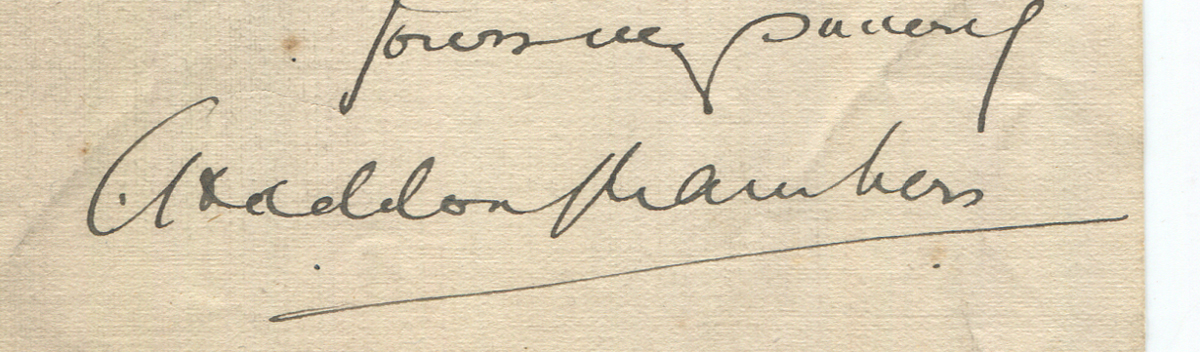 Yours very sincerely
C. Haddon Chambers